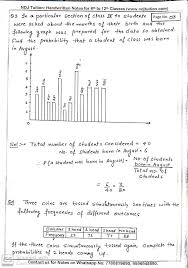 NDJ Tuition: Handwritten Notes for 6th to 12th Classes (www.ndjtuition.com)
Q1 In a particular section of class IX 40 students
were asked about the months of their birth and the
following graph was prepared for the data so obtained.
Find the probability that a student of class was born
in August.
Sol:- Total number of students Considered = 40
No of students born in August = 6
P(a student was born in August) = No of students born in August
Total no. of Students
= 6/40 = 3/20
Three coins are tossed simultaneously 200 times with the
following frequencies of different outcomes
Outcome 3 heads 2 heads 1 head No head
Frequency 23 72 77 28
If the three coins simultaneously tossed again, Complete the
probabilities of 2 heads coming up.